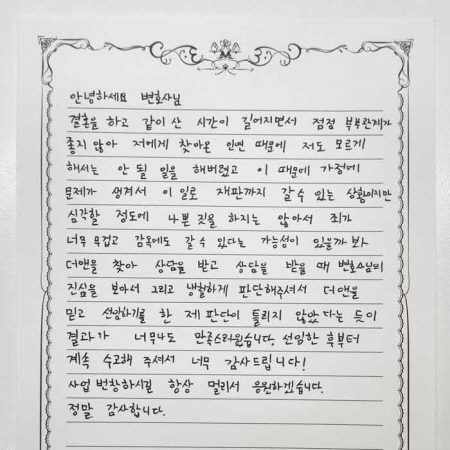 안녕하세요 변호사님
결혼을 하고 같이 산 시간이 길어지면서 점점 부부관계가
좋지 않아 저에게 찾아온 인연 때문에 저도 모르게
해서는 안 될 일을 해버렸고 이 때문에 가정에
문제가 생겨서 이 일로 재판까지 갈 수 있는 상황이지만
심각할 정도에 나쁜 짓을 하지는 않아서 죄가
너무 무겁고 감옥에도 갈 수 있다는 가능성이 있을까 봐
더앤을 찾아 상담을 받고 상담을 받을 때 변호사님의
진심을 보아서 그리고 냉철하게 판단해주셔서 더앤을
믿고 선임하기를 한 제 판단이 틀리지 않았다는 듯이
결과가 너무나도 만족스러웠습니다. 선임한 후부터
계속 수고해 주셔서 너무 감사드립니다!
사업 번창하시길 항상 멀리서 응원하겠습니다.
정말 감사합니다.